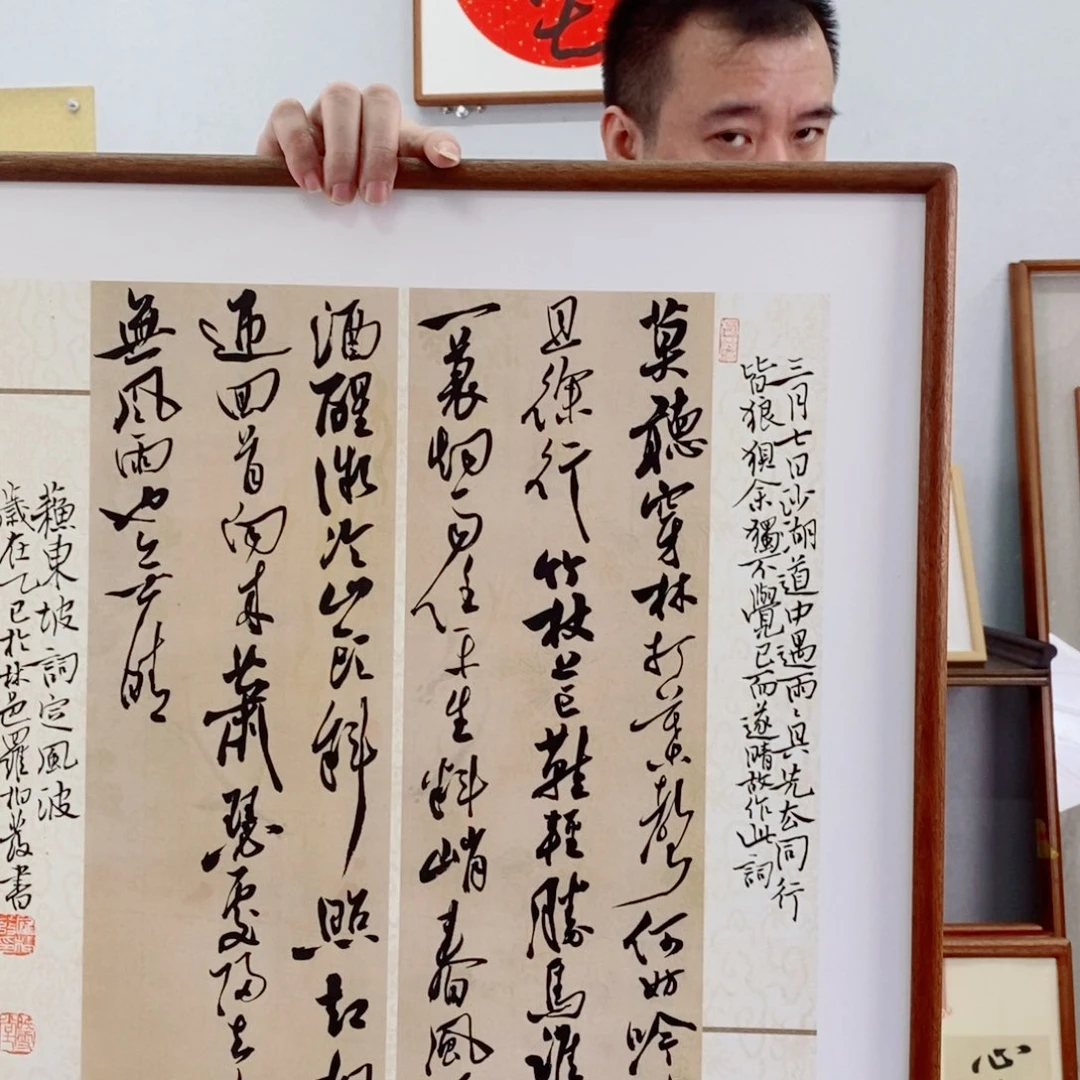 三月七日沙湖道中遇雨〻具先去同行
皆狼狽余獨不覺已而遂晴故作此詞
莫聽穿林打葉聲何妨吟
且徐行竹杖芒鞋輕勝馬誰
一蓑烟雨任平生料峭春風
酒醒微冷山頭斜照却相
迎回首向來蕭瑟處歸去
無風雨也無晴
蘇東坡詞定風波
歲在乙巳於林邑羅發書
心